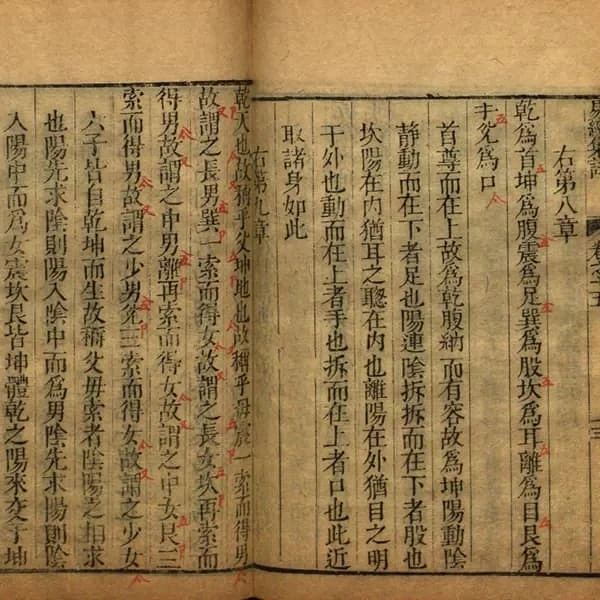 易經集註 卷之五 十三
右第八章
乾為首坤為腹震為足巽為股坎為耳離為目艮為
手兌為口
首尊而在上故為乾腹納而有容故為坤陽動陰
靜動而在下者足也陽連陰拆拆而在下者股也
坎陽在內猶耳之聰在內也離陽在外猶目之明
于外也動而在上者手也拆而在上者口也此近
取諸身如此
右第九章
乾天也故稱乎父坤地也故稱乎母震一索而得男
故謂之長男巽一索而得女故謂之長女坎再索而
得男故謂之中男離再索而得女故謂之中女艮三
索而得男故謂之少男兌三索而得女故謂之少女
六子皆自乾坤而生故稱父母索者陰陽之相求
也陽先求陰則陽入陰中而為男陰先求陽則陰
入陽中而為女震坎艮皆坤體乾之陽來交于坤